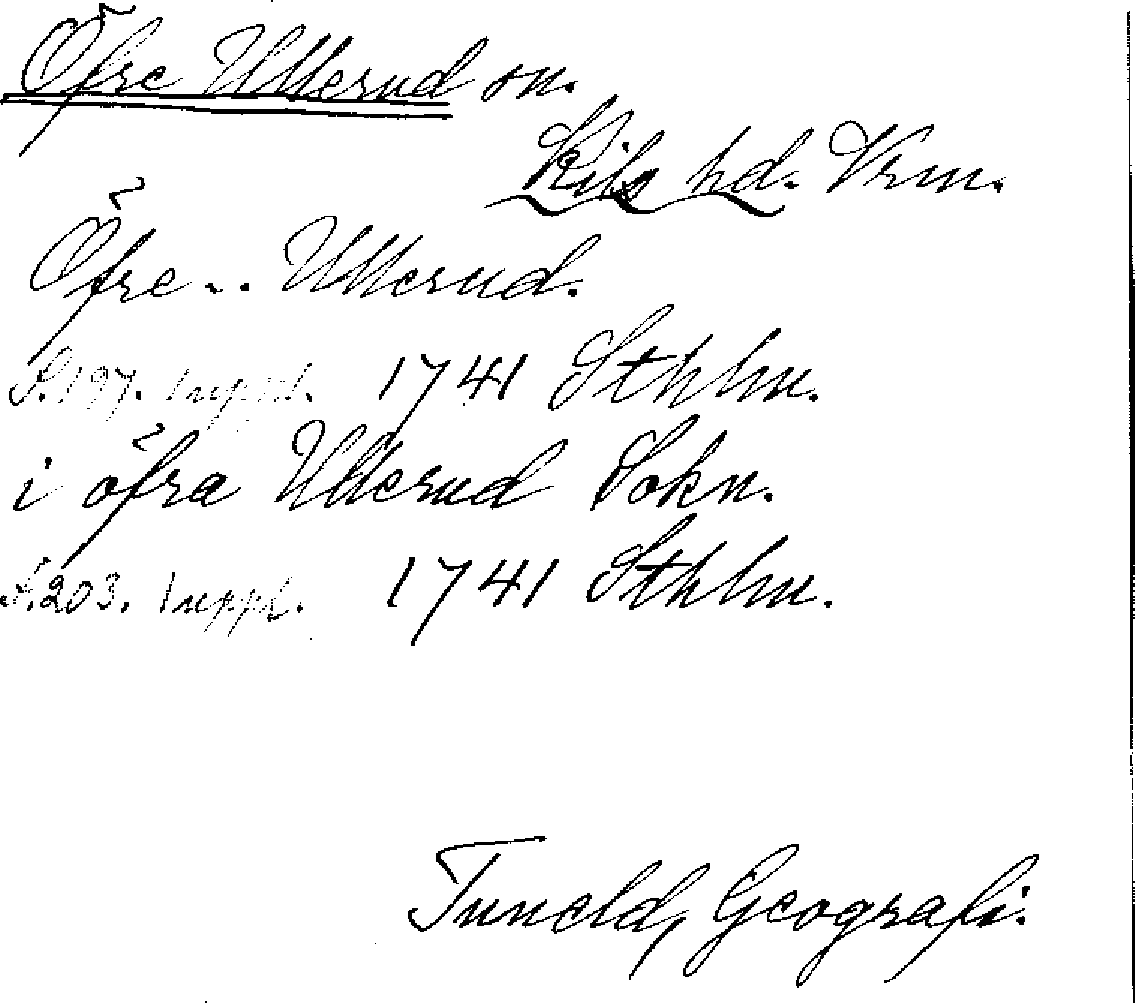 Öfre Ullerud sn.
Kils hd. Vrm.
Öfre - . Ullerud.
S. 197. 1 uppl. 1741 Sthlm.
i öfra Ullerud Sokn.
S. 203. 1 uppl. 1741 Sthlm.
Tuneld, Geografi.